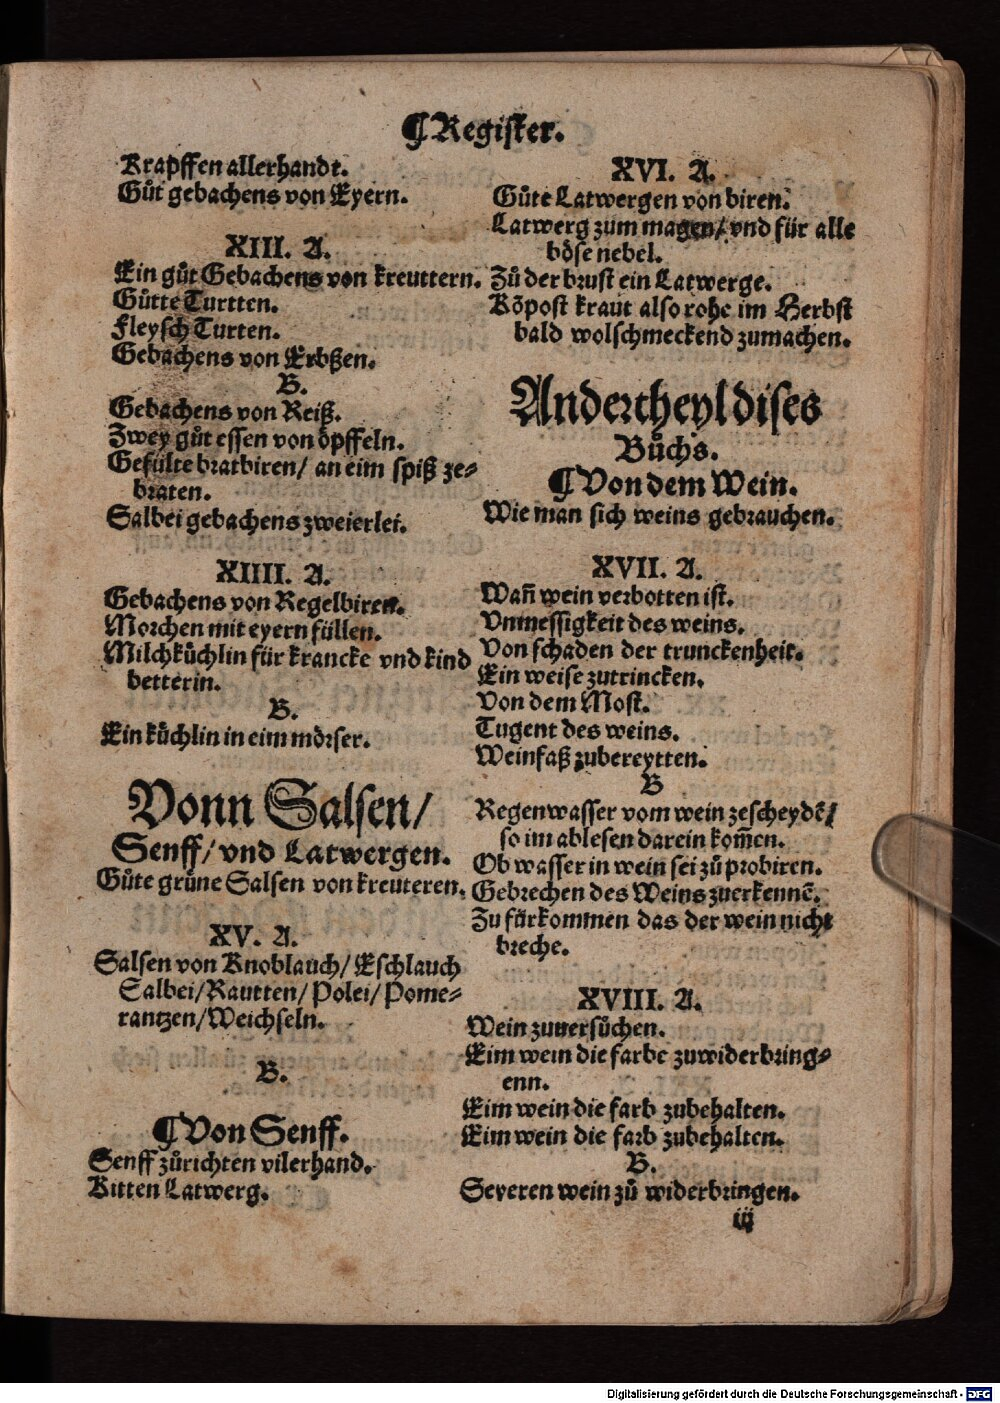 ¶Register.
Krapffen allerhandt.
Gůt gebachens von Eyern.
XIII. A.
Ein gůt Gebachens von kreuttern.
Gůtte Turtten.
Fleysch Turten.
Gebachens von Erbßen.
B.
Gebachens von Reiß.
Zwey gůt essen von öpffeln.
Gefülte bratbiren/ an eim spiß ze⸗
braten.
Salbei gebachens zweierlei.
XIIII. A.
Gebachens von Regelbiren.
Morchen mit eyern füllen.
Milchküchlin für krancke vnd kind
betterin.
B.
Ein küchlin in eim mörser.
Vonn Salsen/
Senff/ vnd Latwergen.
Gůte grüne Salsen von kreuteren.
XV. A.
Salsen von Knoblauch/ Eschlauch
Salbei/ Rautten/ Polei/ Pome⸗
rantzen/ Weichseln.
B.
¶Von Senff.
Senff zůrichten vilerhand.
Kitten Latwerg.
XVI. A.
Gůte Latwergen von biren.
Latwerg zum magen/ vnd für alle
böse nebel.
Zů der brust ein Latwerge.
Kõpost kraut also rohe im Herbst
bald wolschmeckend zumachen.
Ander theyl dises
Bůchs.
¶Von dem Wein.
Wie man sich weins gebrauchen.
XVII. A.
Wañ wein verbotten ist.
Vnmessigkeit des weins.
Von schaden der trunckenheit.
Ein weise zutrincken.
Von dem Most.
Tugent des weins.
Weinfaß zubereytten.
B
Regenwasser vom wein zescheydẽ/
so im ablesen darein kom̃en.
Ob wasser in wein sei zů probiren.
Gebrechen des Weins zuerkennẽ.
Zu fürkommen das der wein nicht
breche.
XVIII. A.
Wein zuuersůchen.
Eim wein die farbe zuwiderbring⸗
enn.
Eim wein die farb zubehalten.
Eim wein die farb zubehalten.
B.
Seyeren wein zů widerbringen.
iij
Digitalisierung gefördert durch die Deutsche Forschungsgemeinschaft - DFG